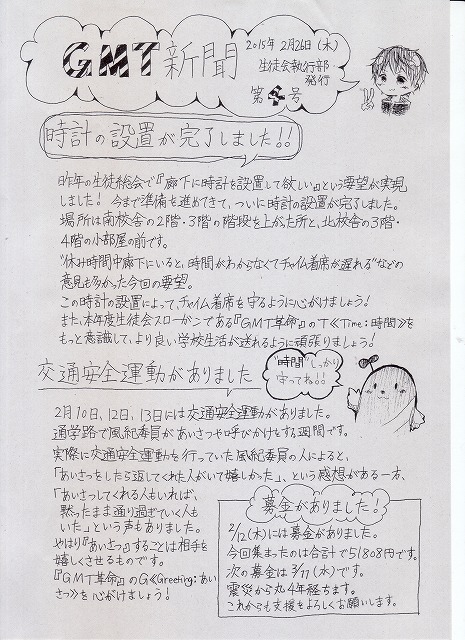 GMT新聞
2015年 2月26日(木)
生徒会執行部
発行
第4号
時計の設置が完了しました!!
昨年の生徒総会で『廊下に時計を設置して欲しい』という要望が実現
しました! 今まで準備を進めてきて、ついに時計の設置が完了しました。
場所は南校舎の2階・3階の階段を上がった所と、北校舎の3階・
4階の小部屋の前です。
"休み時間中廊下にいると、時間がわからなくてチャイム着席が遅れる"などの
意見も多かった今回の要望。
この時計の設置によって、チャイム着席を守るように心がけましょう!
また、本年度生徒会スローガンである『GMT革命』のT《Time:時間》を
もっと意識して、より良い学校生活が送れるように頑張りましょう!
"時間"しっかり
守ってね!!
交通安全運動がありました
2月10日、12日、13日には交通安全運動がありました。
通学路で風紀委員があいさつや呼びかけをする週間です。
実際に交通安全運動を行っていた風紀委員の人によると、
「あいさつをしたら返してくれた人がいて嬉しかった」、という感想がある一方、
「あいさつしてくれる人もいれば、
黙ったまま通り過ぎていく人も
いた」という声もありました。
やはり『あいさつ』することは相手を
嬉しくさせるものです。
『GMT革命』のG《Greeting:あい
さつ》を心がけましょう!
募金がありました!
2/12(木)には募金がありました。
今回集まったのは合計で51808円です。
次の募金は3/11(水)です。
震災から丸4年経ちます。
これからも支援をよろしくお願いします。